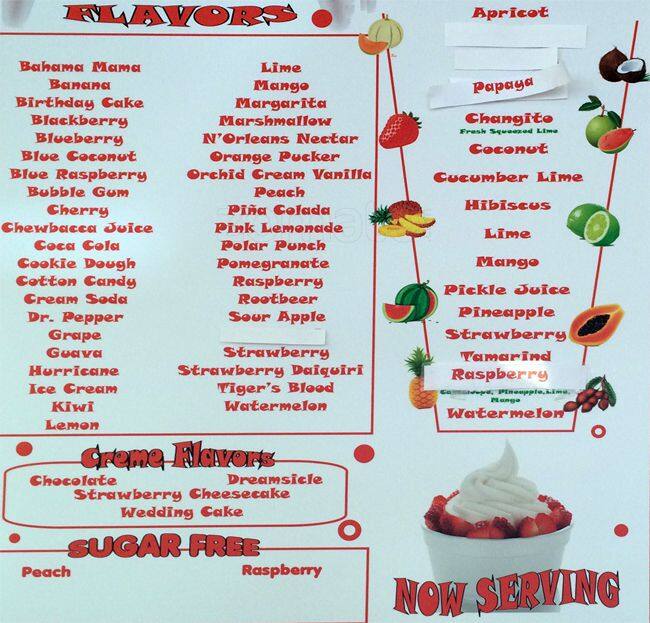 FLAVORS
Bahama Mama
Banana
Birthday Cake
Blackberry
Blueberry
Blue Coconut
Blue Raspberry
Bubble Gum
Cherry
Chewbacca Juice
Coca Cola
Cookie Dough
Cotton Candy
Cream Soda
Dr. Pepper
Grape
Guava
Hurricane
Ice Cream
Kiwi
Lemon
Lime
Mango
Margarita
Marshmallow
N'Orleans Nectar
Orange Pucker
Orchid Cream Vanilla
Peach
Piña Colada
Pink Lemonade
Polar Punch
Pomegranate
Raspberry
Rootbeer
Sour Apple
Strawberry
Strawberry Daiquiri
Tiger's Blood
Watermelon
Apricot
Papaya
Changito
Fresh Squeezed Lime
Coconut
Cucumber Lime
Hibiscus
Lime
Mango
Pickle Juice
Pineapple
Strawberry
Tamarind
Raspberry
Cantaloupe, Pineapple, Lime,
Mango
Watermelon
Creme Flavors
Chocolate Dreamsicle
Strawberry Cheesecake
Wedding Cake
SUGAR FREE
Peach Raspberry
NOW SERVING